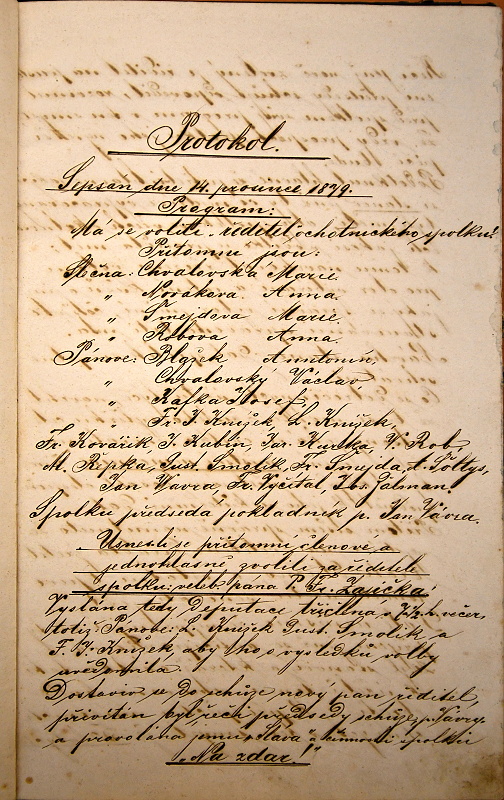 Protokol.
Sepsán dne 14. prosince 1879.
Program:
Má se voliti ředitel ochotnického spolku!
Přítomni jsou:
Slečna: Chvalovská Marie.
" Nováková Anna.
" Šmejdova Marie.
" Robova Anna.
Pánové: Blažek Anntonín,
" Chvalovský Václav
" Kafka Josef,
" Fr. J. Knížek, L. Knížek,
Fr. Kovářík, J. Kubín, Jar. Kurka, V. Rob,
M. Řepka, Just. Smolík, Fr. Šmejda, A. Šoltys,
Jan Wávra Fr. Vyčítal, Jos. Jalman.
Spolku předsedá pokladník p. Jan Vávra.
Usnesli se přítomní členové, a
jednohlasně zvolili za ředitele
spolku: veleb. pána P. Fr. Zajíčka!
Vyslána tedy Deputace tříčlená v 7 1/2 h. večer,
totiž Pánové: L. Knížek Just. Smolík, a
F. J. Knížek, aby ho o výsledku volby
uvědomila.
Dostaviv se do schůze nový pan ředitel,
přivítán byl řečí předsedy schůze p. Vávry.
a provolána jemu "Sláva" a činnosti spolku
"Na zdar!"